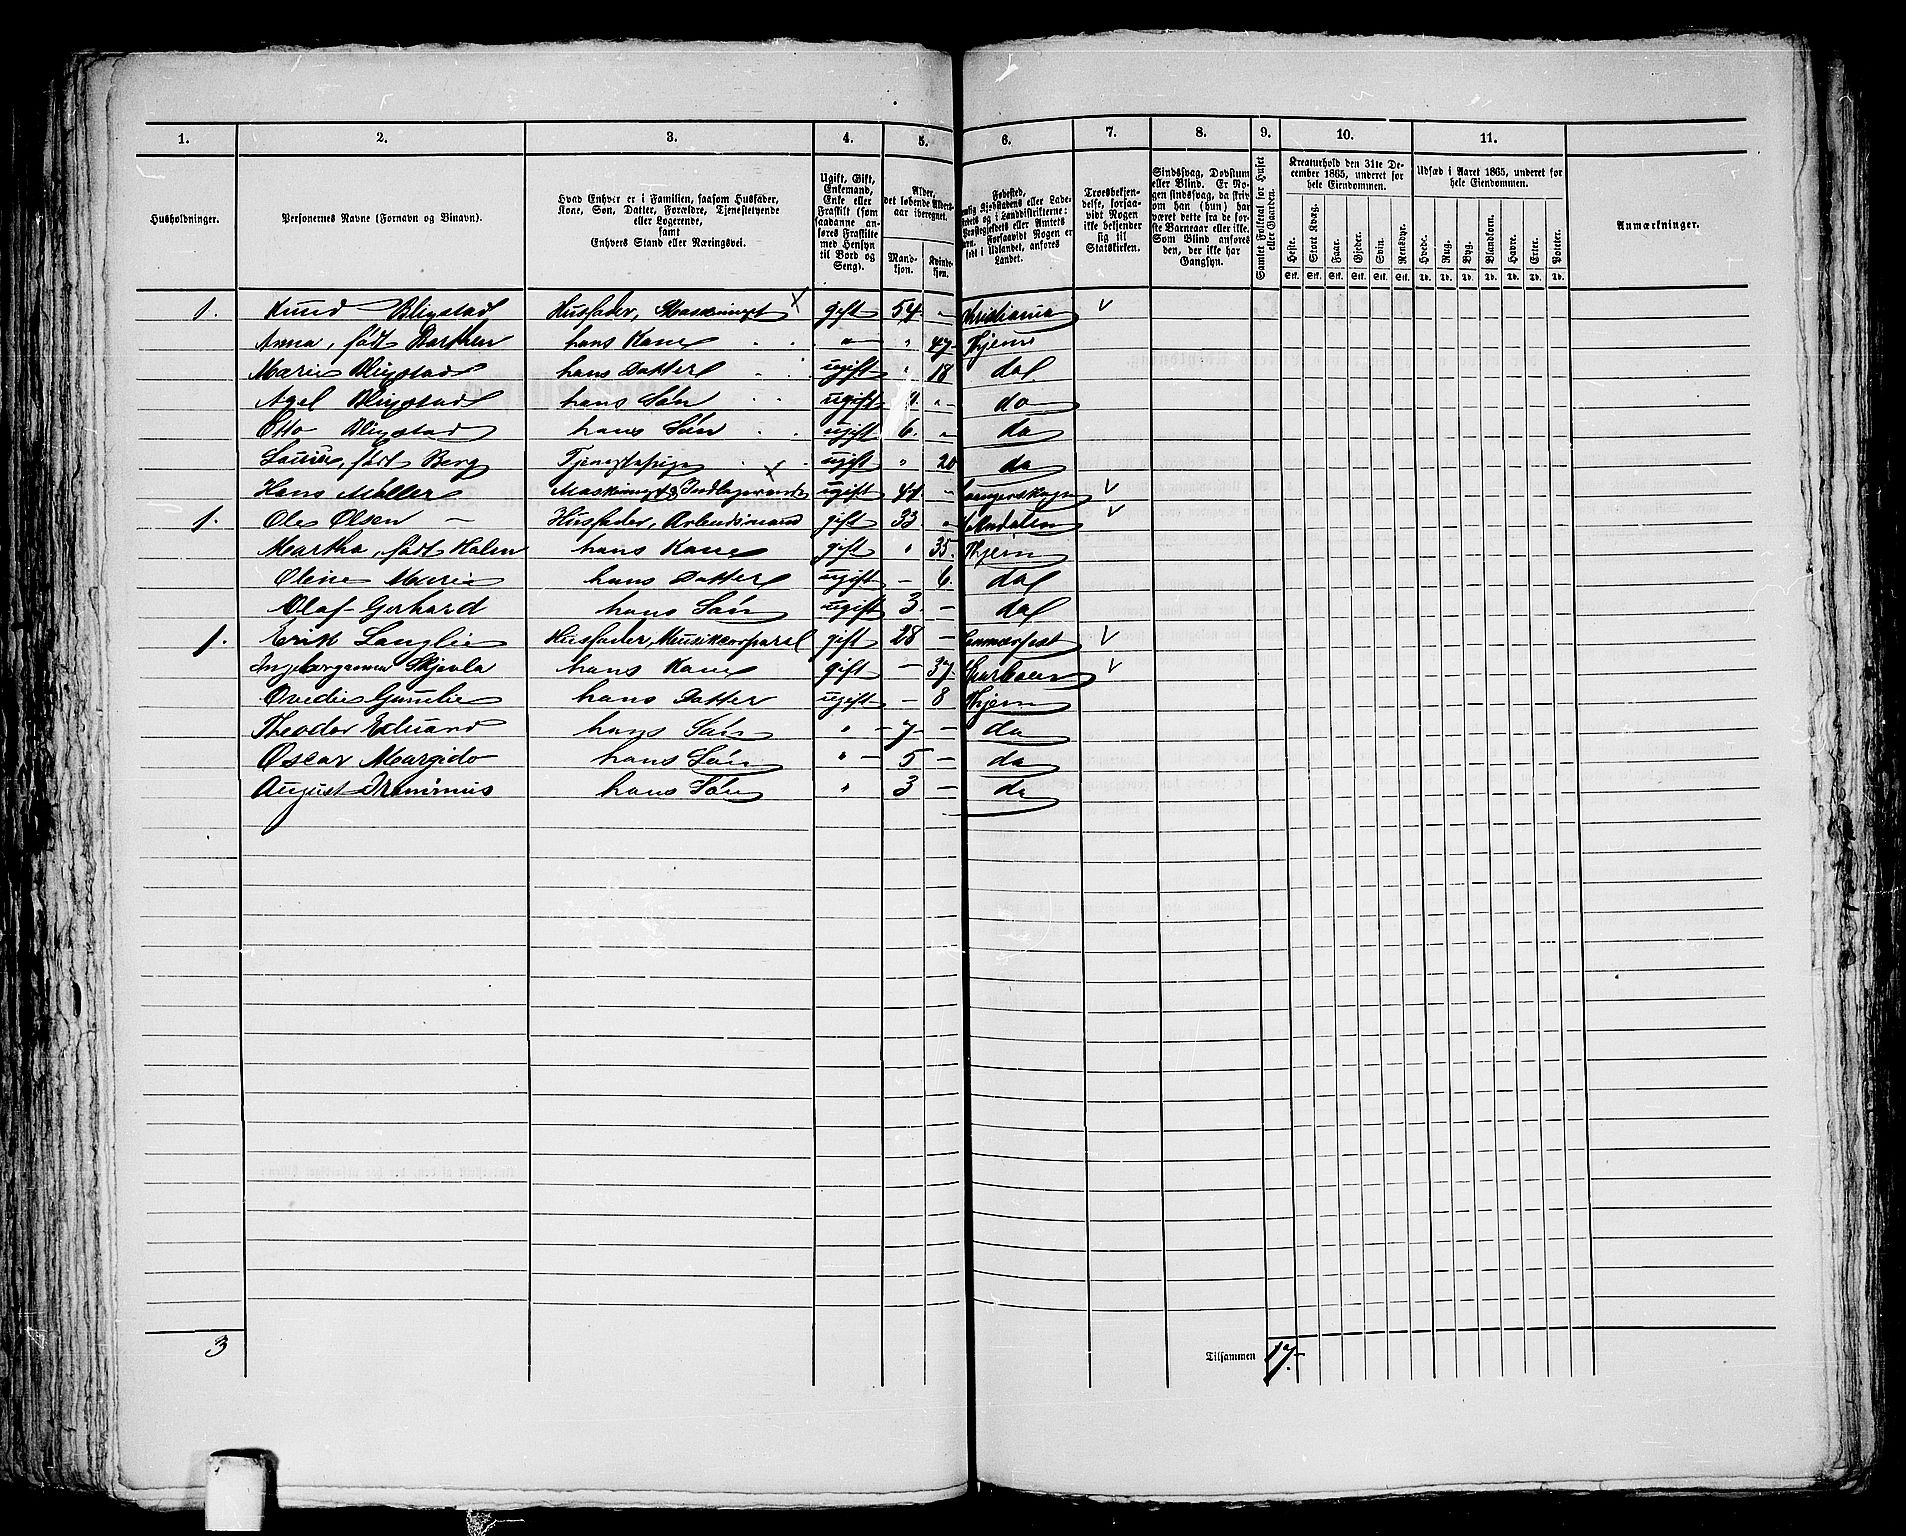 1. 2. 3. 4. 5. 6. 7. 8. 9. 10. 11.
Husholdninger.
Personernes Navne (Fornavn og Binavn).
Hvad Enhver er i Familien, saasom Husfader,
Kone, Søn, Datter, Forældre, Tjenestetyende
eller Logerende,
samt
Enhvers Stand eller Næringsvei.
Ugift, Gift,
Enkemand,
Enke eller
Fraskilt (som
saadanne an-
føres Fraskilte
med Hensyn
til Bord og
Seng).
Alder,
det løbende Alders-
aar iberegnet.
Mand-
kjøn.
Kvinde-
kjøn.
Fødested,
Forsaavidt Nogen er
født i Udlandet, anføres
Landet.
Troesbekjen-
delse, forsaa-
vidt Nogen
ikke bekjender
sig til
Statskirken.
Sindssvag, Døvstum
eller Blind. Er No-
gen sindssvag, da skri-
ves om han (hun) har
været dette fra de før-
ste Barneaar eller ikke.
Som Blind anføres
den, der ikke har
Gangsyn.
Samlet Folketal for Huset
eller Gaarden.
Kreaturhold den 31te De-
cember 1865, underet for
hele Eiendommen.
Heste. Stort Kvæg. Faar. Gjeder. Svin. Rensdyr.
Stk. Stk. Stk. Stk. Stk. Stk.
Udsæd i Aaret 1865, underet for
hele Eiendommen.
Hvede. Rug. Byg. Blandkorn. Havre. Erter. Poteter.
Td. Td. Td. Td. Td. Td. Td.
Anmærkninger.
1. Knud Bligstad Husfader, Maskinmst gift 54 - Christiania
Anna, født Barthen hans Kone " " 47 Thjem
Marie Bligstad hans Datter ugift " 18 do
Axel Bligstad hans Søn ugift " do
Otto Bligstad hans Søn ugift 6. " do
født Berg Tjenestepige ugift " 20 do
Hans Møller ugift -
1. Ole Olsen - Husfader, Arbeidsmand gift 33 "
Martha, født Holm hans Kone gift " 35. Thjem
Oline Marie hans Datter ugift - 6. do
Olaf Gerhard hans Søn ugift 3 - do
1. Erik Langlie Husfader, Musikcorporal gift 28 - Hammerfest
hans Kone gift - 37
hans Datter ugift - 8 Thjem
Theodor Eduard hans Søn " 7 - do
Oscar Margido hans Søn " 5 - do
August hans Søn " 3 - do
3
Tilsammen 17